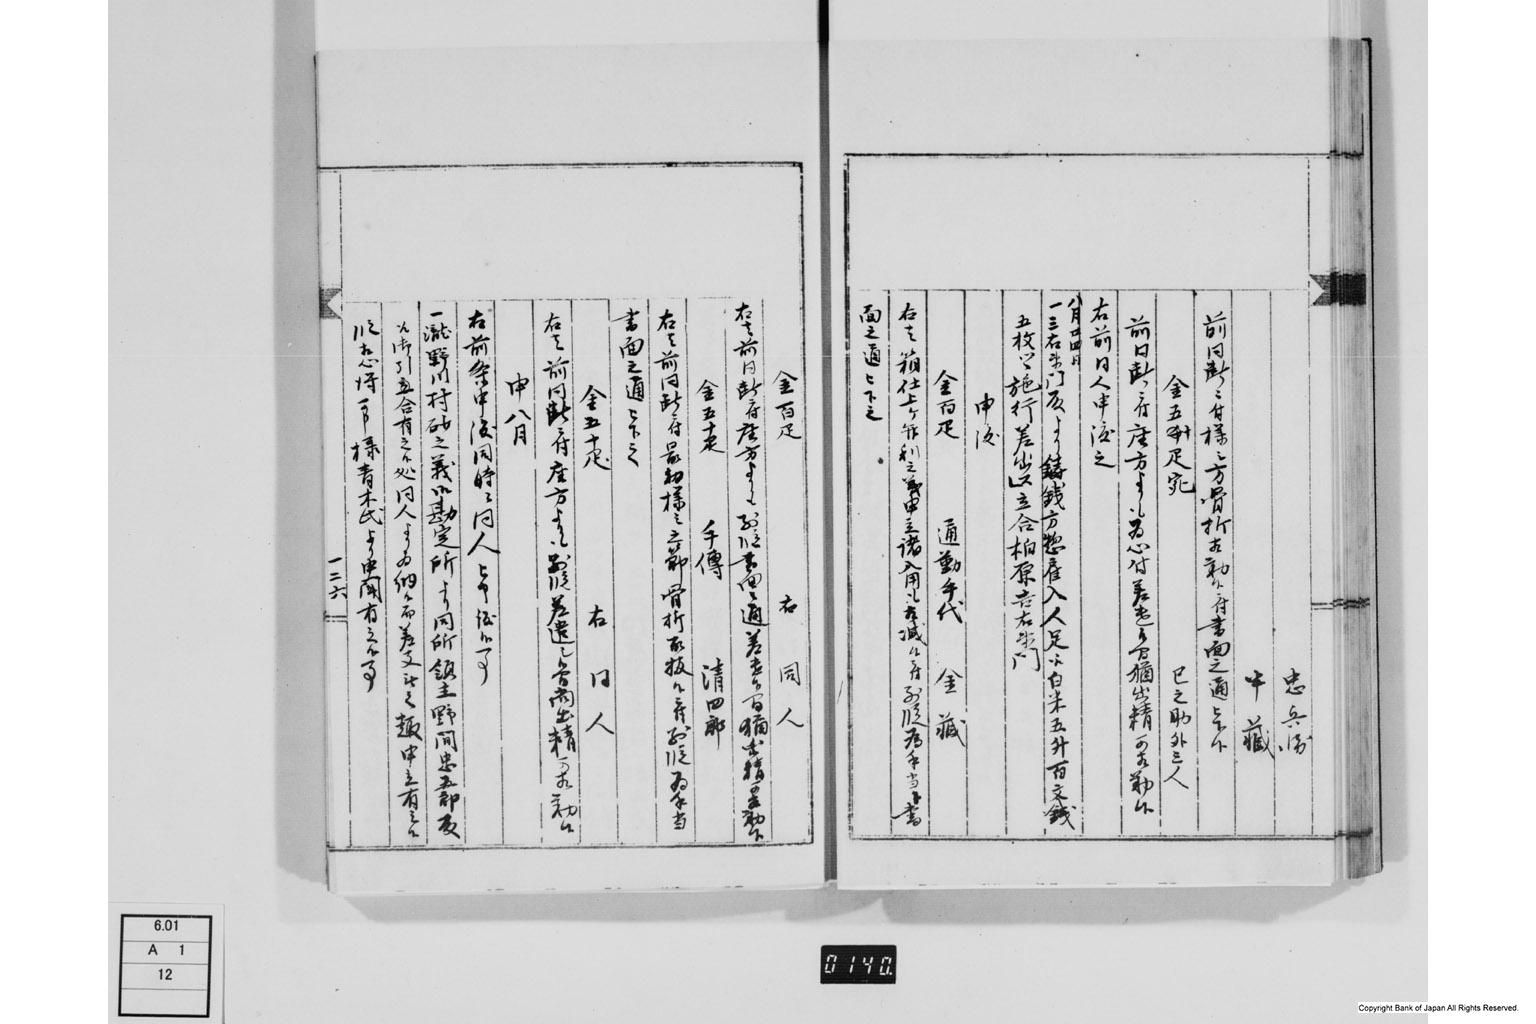 忠兵衛
牛藏
前同断ニ付様之方骨折相勤候ニ付書面之通被下
金五拾疋宛 巳之助外三人
前同断ニ付座方よりも為心付差遣候間猶出精可相勤候
右前同人申渡之
八月廿四日
一三右衛門殿より鋳銭方惣雇入人足に白米五升百文銭
五枚ツヽ施行差出ス立合柏原吉右衛門
申渡
金百疋 通勤手代 金藏
右之 仕上ケ 利之義申立諸入用も相減候ニ付別段為手当書
面之通被下之
金百疋 右同人
右者前同断ニ付座方よりも別段書面之通差遣候間猶出精可相勤候
金五十疋 手傳 清四郎
右者前同断ニ付最初様之節骨折取扱候ニ付別段為手当
書面之通被下之
金五十疋 右同人
右者前同断ニ付座方よりも別段差遣之候間尚出精可相勤候
申八月
右前条申渡同時ニ同人被申渡候事
一瀧野川村砂之義御勘定所より同所領主野間忠五郎殿
江御引立合有之候処同人より為納候而差支無之趣申立有之候
段相心得可申様青木氏より申聞有之候事
一二六
6.01
A 1
12
0140.
Copyright Bank of Japan All Rights Reserved.